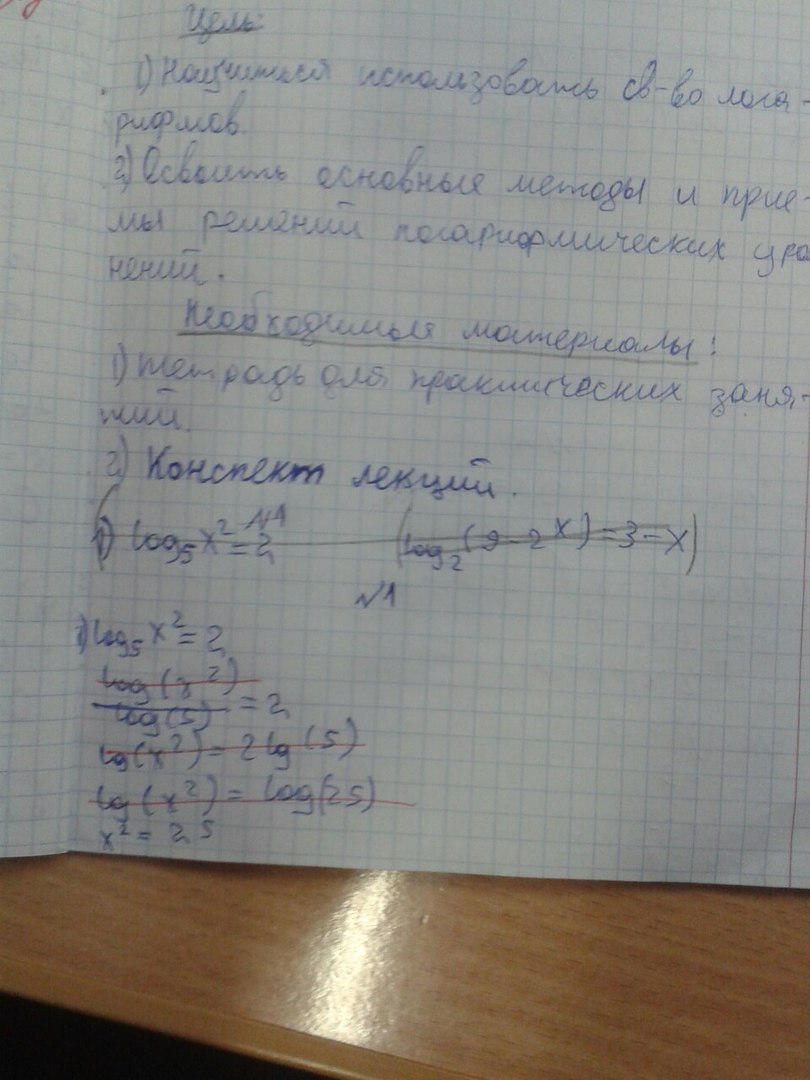 Цель:
1) Научиться использовать св-во лога-
рифмов.
2) Освоить основные методы и прие-
мы решений логарифмических ура
нений.
Необходимые материалы:
1) тетрадь для практических заня-
тий.
2) Конспект лекций.
№1
1) log₅x² = 2 (log₂(9-2ˣ)=3-x)
№1
1) log₅x² = 2
log(x²)
log(5) = 2
lg(x²) = 2lg(5)
lg(x²) = log(25)
x² = 25